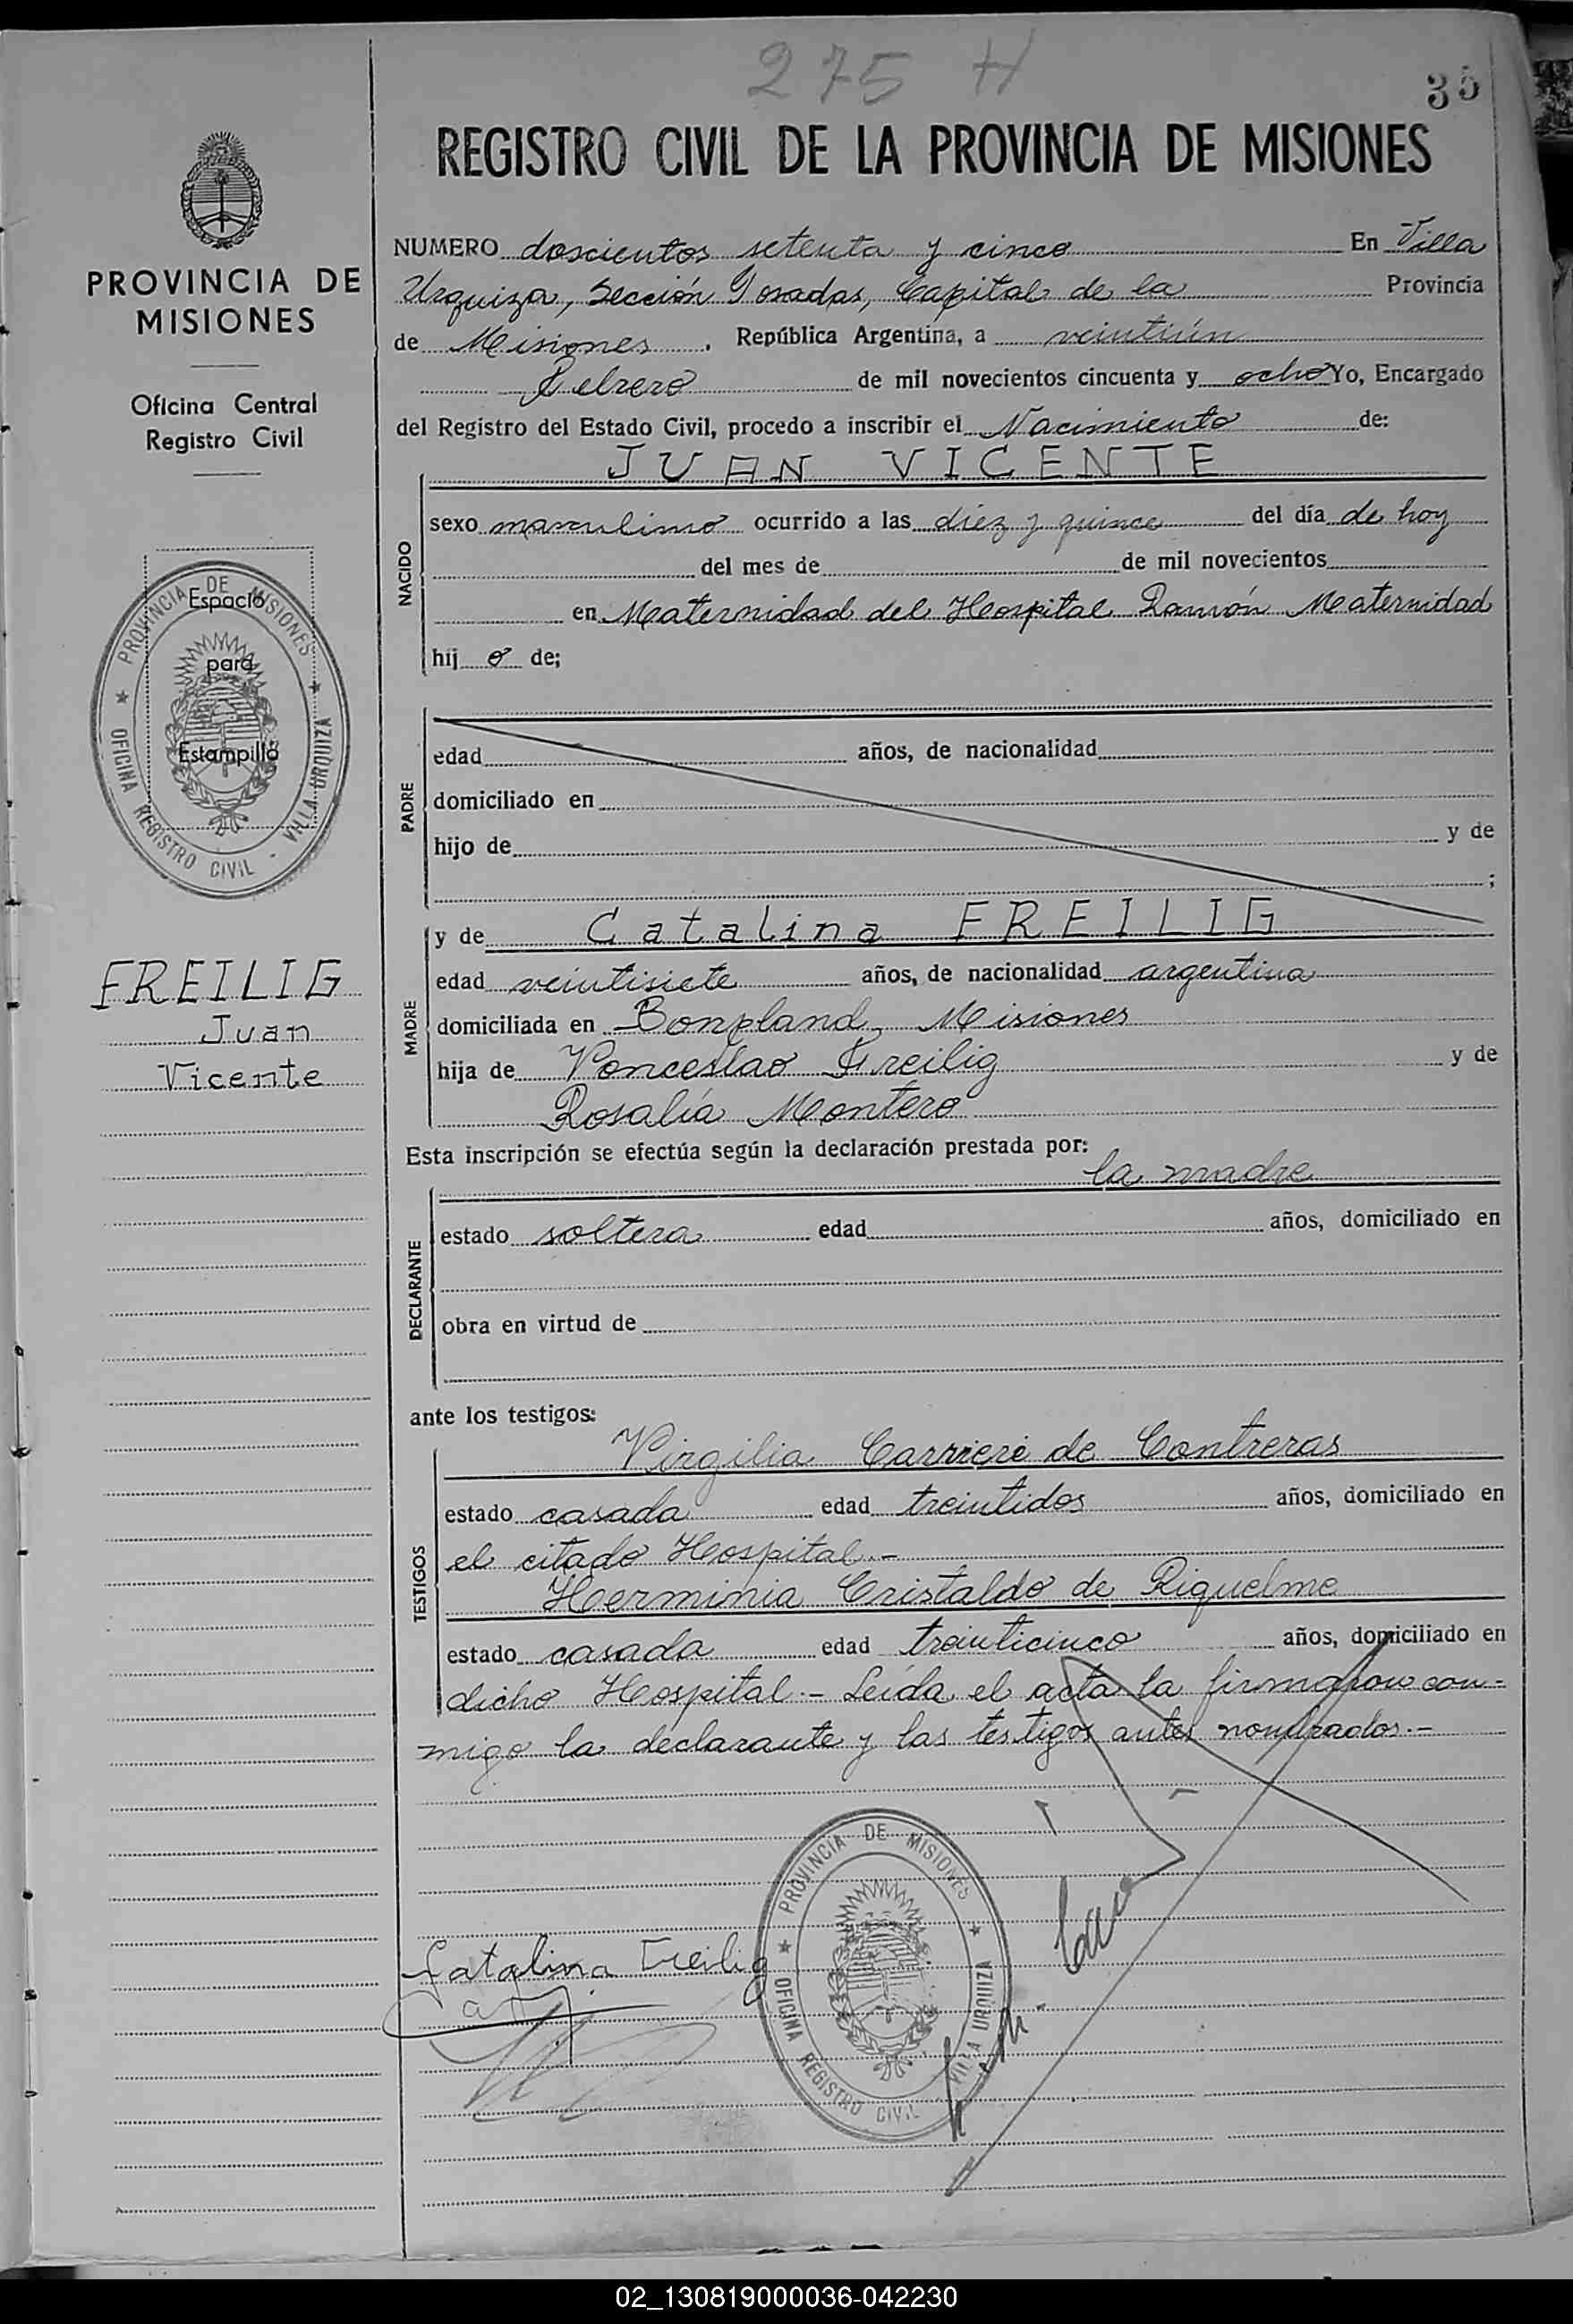 275 H
35
REGISTRO CIVIL DE LA PROVINCIA DE MISIONES
PROVINCIA DE
MISIONES
Oficina Central
Registro Civil
PROVINCIA DE MISIONES
OFICINA REGISTRO CIVIL - VILLA URQUIZA
Espacio
para
Estampilla
FREILIG
Juan
Vicente
NUMERO doscientos setenta y cinco En Villa
Urquiza, Sección Posadas, Capital de la Provincia
de Misiones, República Argentina, a veintiún
Febrero de mil novecientos cincuenta y ocho Yo, Encargado
del Registro del Estado Civil, procedo a inscribir el Nacimiento de:
JUAN VICENTE
NACIDO
sexo masculino ocurrido a las diez y quince del día de hoy
del mes de de mil novecientos
en Maternidad del Hospital Ramón Maternidad
hij o de;
PADRE
edad años, de nacionalidad
domiciliado en
hijo de y de
;
MADRE
y de Catalina FREILIG
edad veintisiete años, de nacionalidad argentina
domiciliada en Bonpland, Misiones
hija de Vonceslao Freilig y de
Rosalía Montero
Esta inscripción se efectúa según la declaración prestada por:
la madre
DECLARANTE
estado soltera edad años, domiciliado en
obra en virtud de
ante los testigos:
TESTIGOS
Virgilia Carrieri de Contreras
estado casada edad treintidos años, domiciliado en
el citado Hospital.-
Herminia Cristaldo de Riquelme
estado casada edad treinticinco años, domiciliado en
dicho Hospital.- Leída el acta la firmaron con=
migo la declarante y las testigos antes nombrados.-
Catalina Freilig
PROVINCIA DE MISIONES
OFICINA REGISTRO CIVIL VILLA URQUIZA
02_130819000036-042230